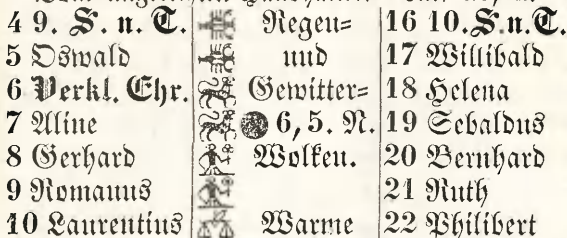 4 9. S. n. T. Regen= 16 10. S. n. T.
5 Oswald und 17 Willibald
6 Verkl. Chr. Gewitter= 18 Helena
7 Aline 6, 5. N. 19 Sebaldus
8 Gerhard Wolken. 20 Bernhard
9 Romanus 21 Ruth
10 Laurentius Warme 22 Philibert